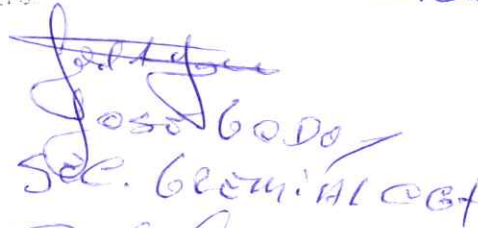 José GODOY
SEC. GREMIAL CGT